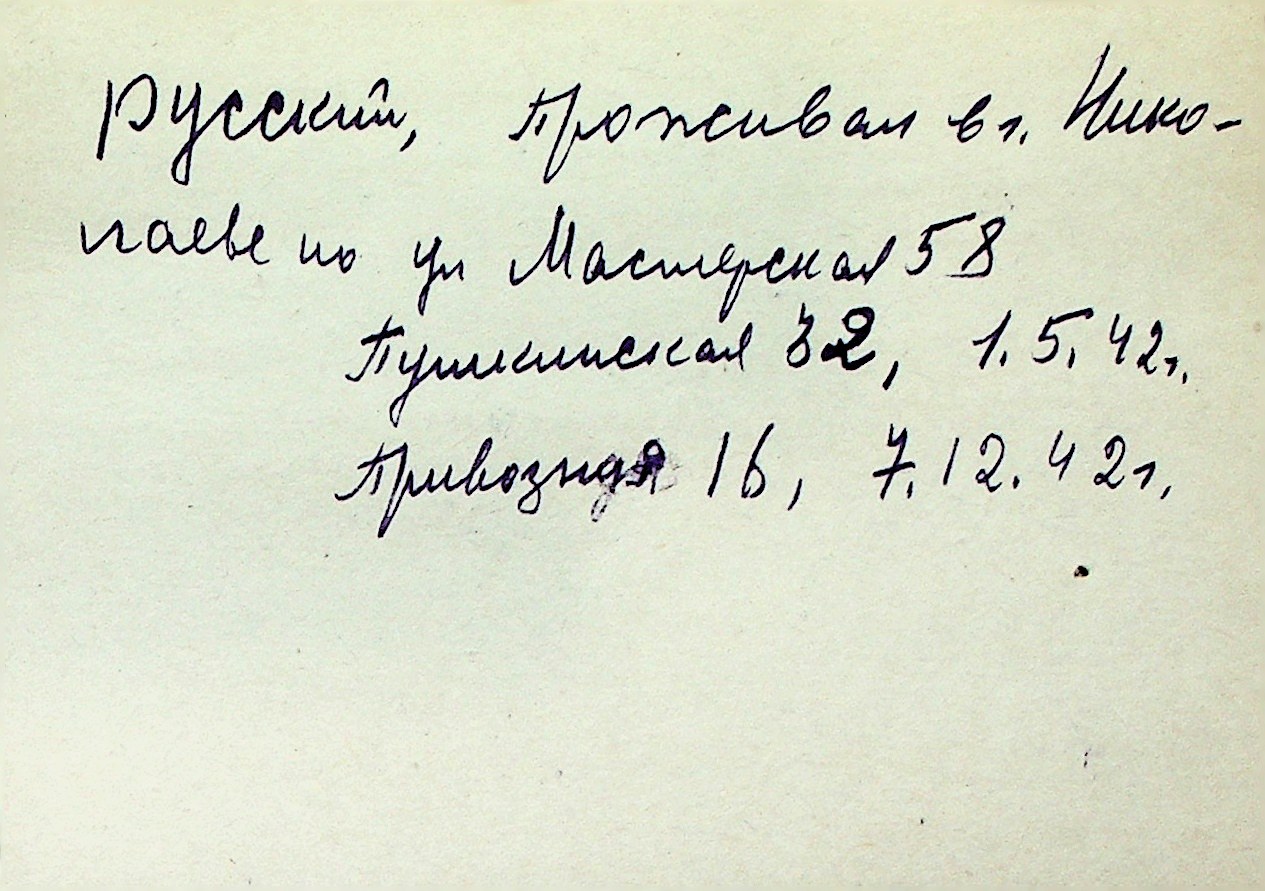 русский, проживал в г. Нико-
лаеве по ул Мастерская 58
Пушкинская 32, 1.5.42г.
Привозная 16, 7.12.42г.